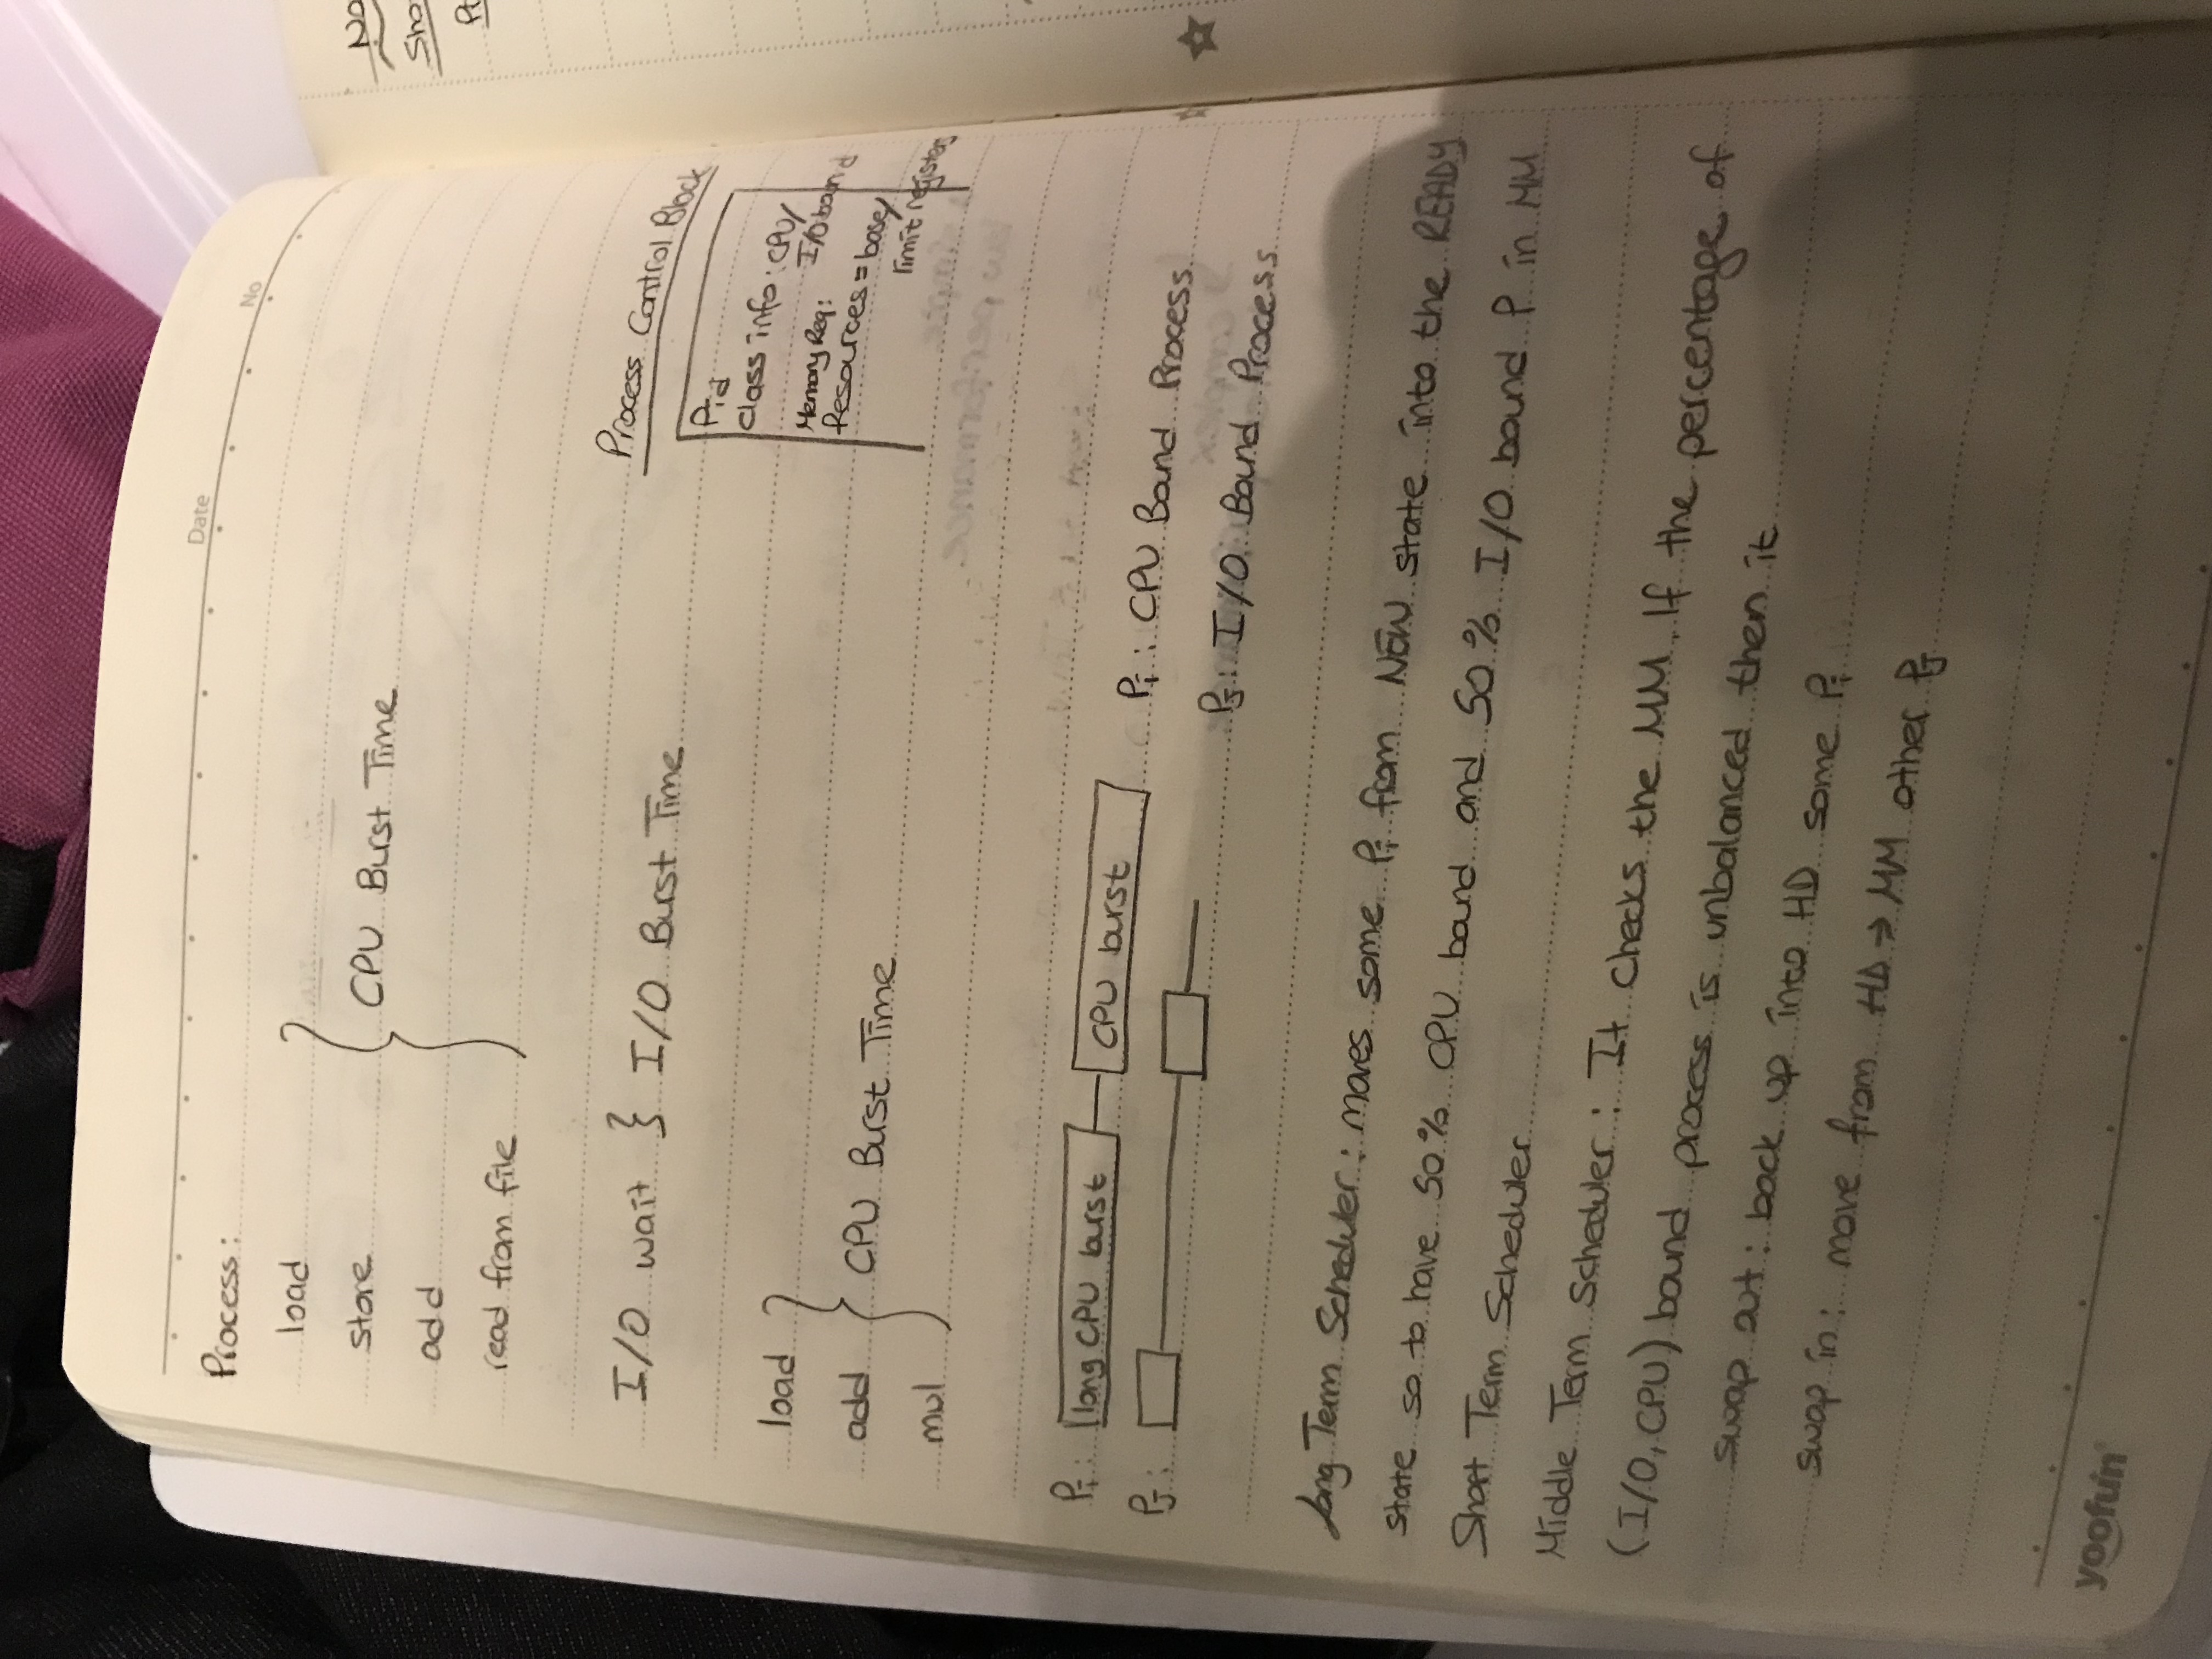 Date
No
Process:
load
store
add
read from file
CPU Burst Time
I/O wait } I/O Burst Time
Process Control Block
Pid
class info: CPU/
I/O bound
Memory Req:
Resources = base/
limit registers
load
add
mul
CPU Burst Time
Pi: long CPU burst CPU burst
Pj:
Pi: CPU Bound Process
Pj: I/O Bound Process
Long Term Scheduler: moves some Pi from NEW state into the READY
state so to have 50% CPU bound and 50% I/O bound P in MM
Short Term Scheduler
Middle Term Scheduler: It checks the MM. If the percentage of
(I/O, CPU) bound process is unbalanced then it
swap out: back up into HD some Pi
swap in: move from HD → MM other Pj
yoofun